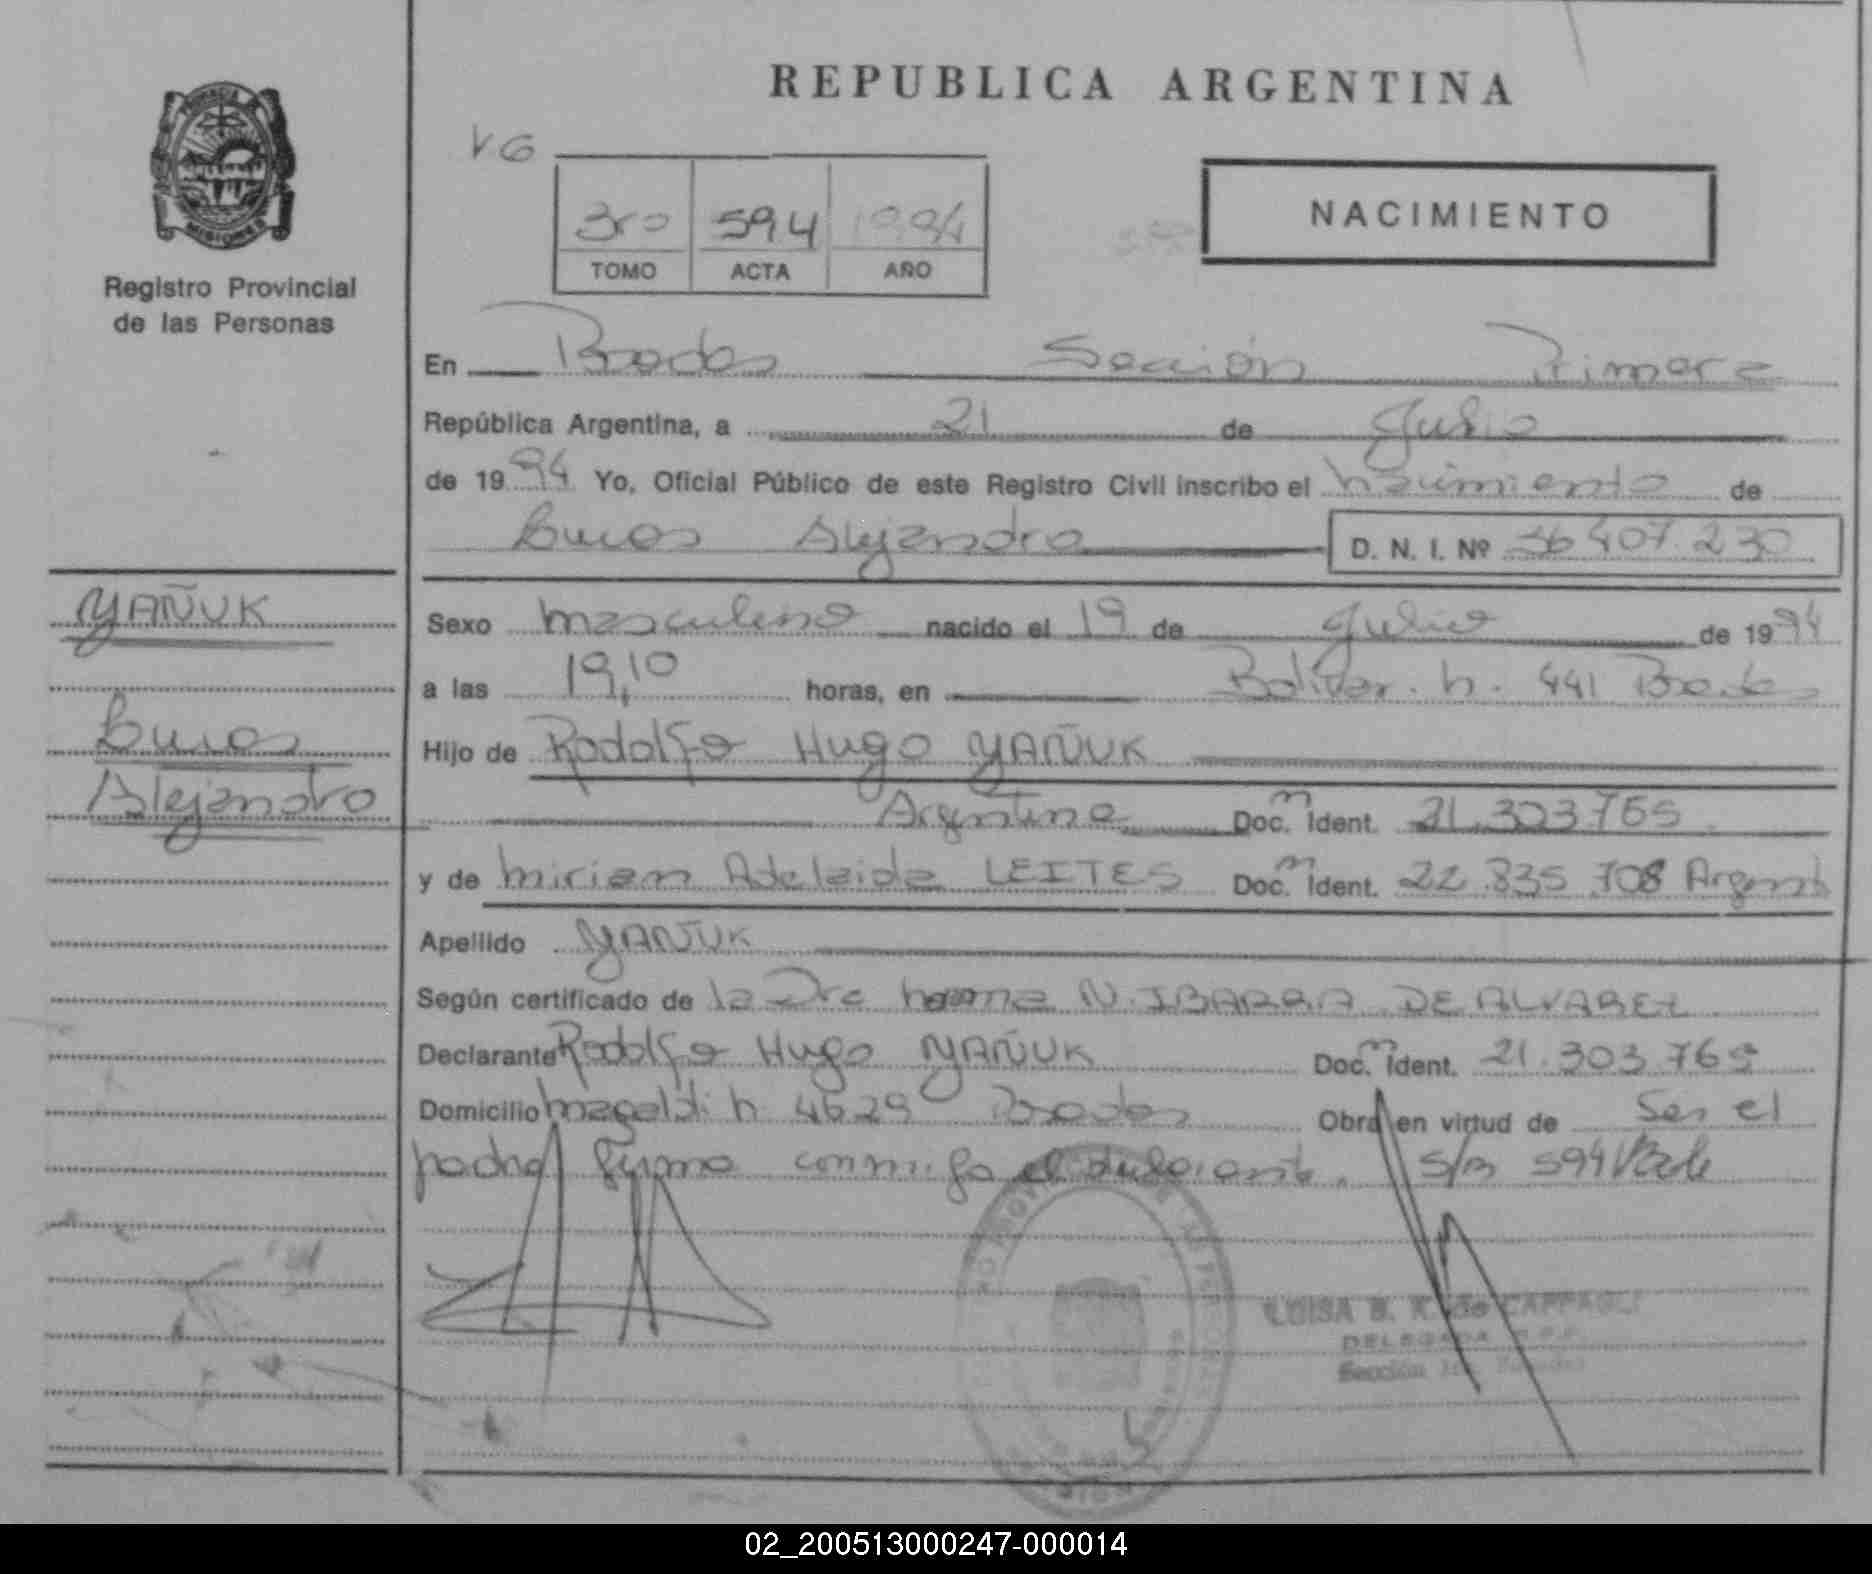 PROVINCIA DE
MISIONES
Registro Provincial
de las Personas
REPUBLICA ARGENTINA
3ro 594 1994
TOMO ACTA AÑO
NACIMIENTO
En Posadas Sección Primera
República Argentina, a 21 de Julio
de 1994 Yo, Oficial Público de este Registro Civil inscribo el nacimiento de
Lucas Alejandro D. N. I. Nº 36 407.230
YAÑUK
Lucas
Alejandro
Sexo masculino nacido el 19 de Julio de 1994
a las 19,10 horas, en Bolivar. n. 441 Posadas
Hijo de Rodolfo Hugo YAÑUK
Argentino Doc.m Ident. 21.303.765
y de Miriam Adelaida LEITES Doc.m Ident. 22.835.708 Argent
Apellido YAÑUK
Según certificado de la Dra Norma N. IBARRA DE ALVAREZ
Declarante Rodolfo Hugo YAÑUK Doc.m Ident. 21.303.765
Domicilio Magaldi n 4629 Posadas Obra en virtud de Ser el
padre firma conmigo el declarante. S/R 594 Vale
LUISA B. K. de CAPPAGLI
DELEGADA R.P.P.
Sección 1ra. Posadas
02_200513000247-000014